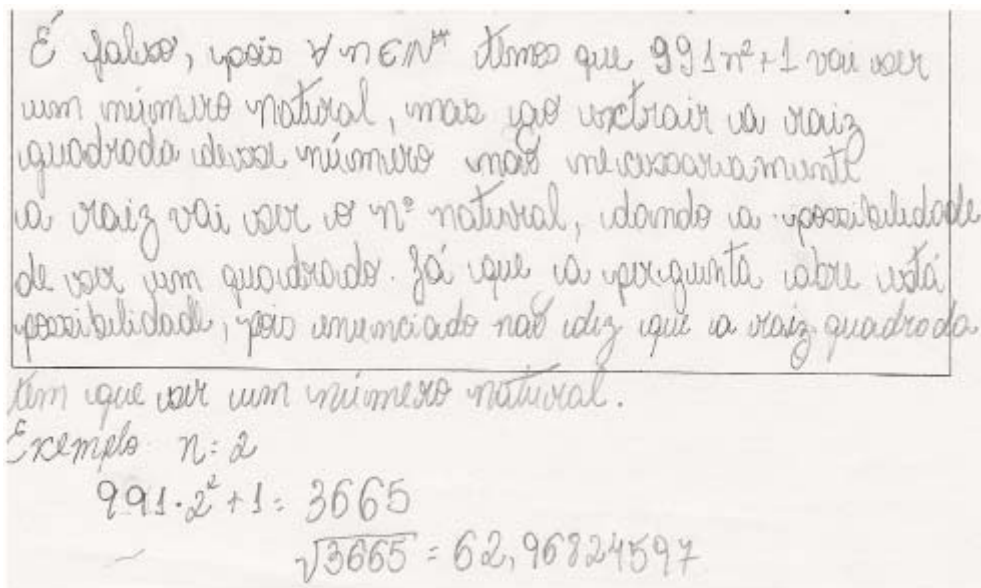 É falso, pois ∀ n ∈ N* temos que 991n²+1 vai ser
um número natural, mas ao extrair a raiz
quadrada desse número não necessariamente
a raiz vai ser o nº natural, dando a possibilidade
de ser um quadrado. Já que a pergunta abre está
possibilidade, pois enunciado não diz que a raiz quadrada
tem que ser um número natural.
Exemplo n=2
991·2²+1= 3665
√3665 = 62,96824597